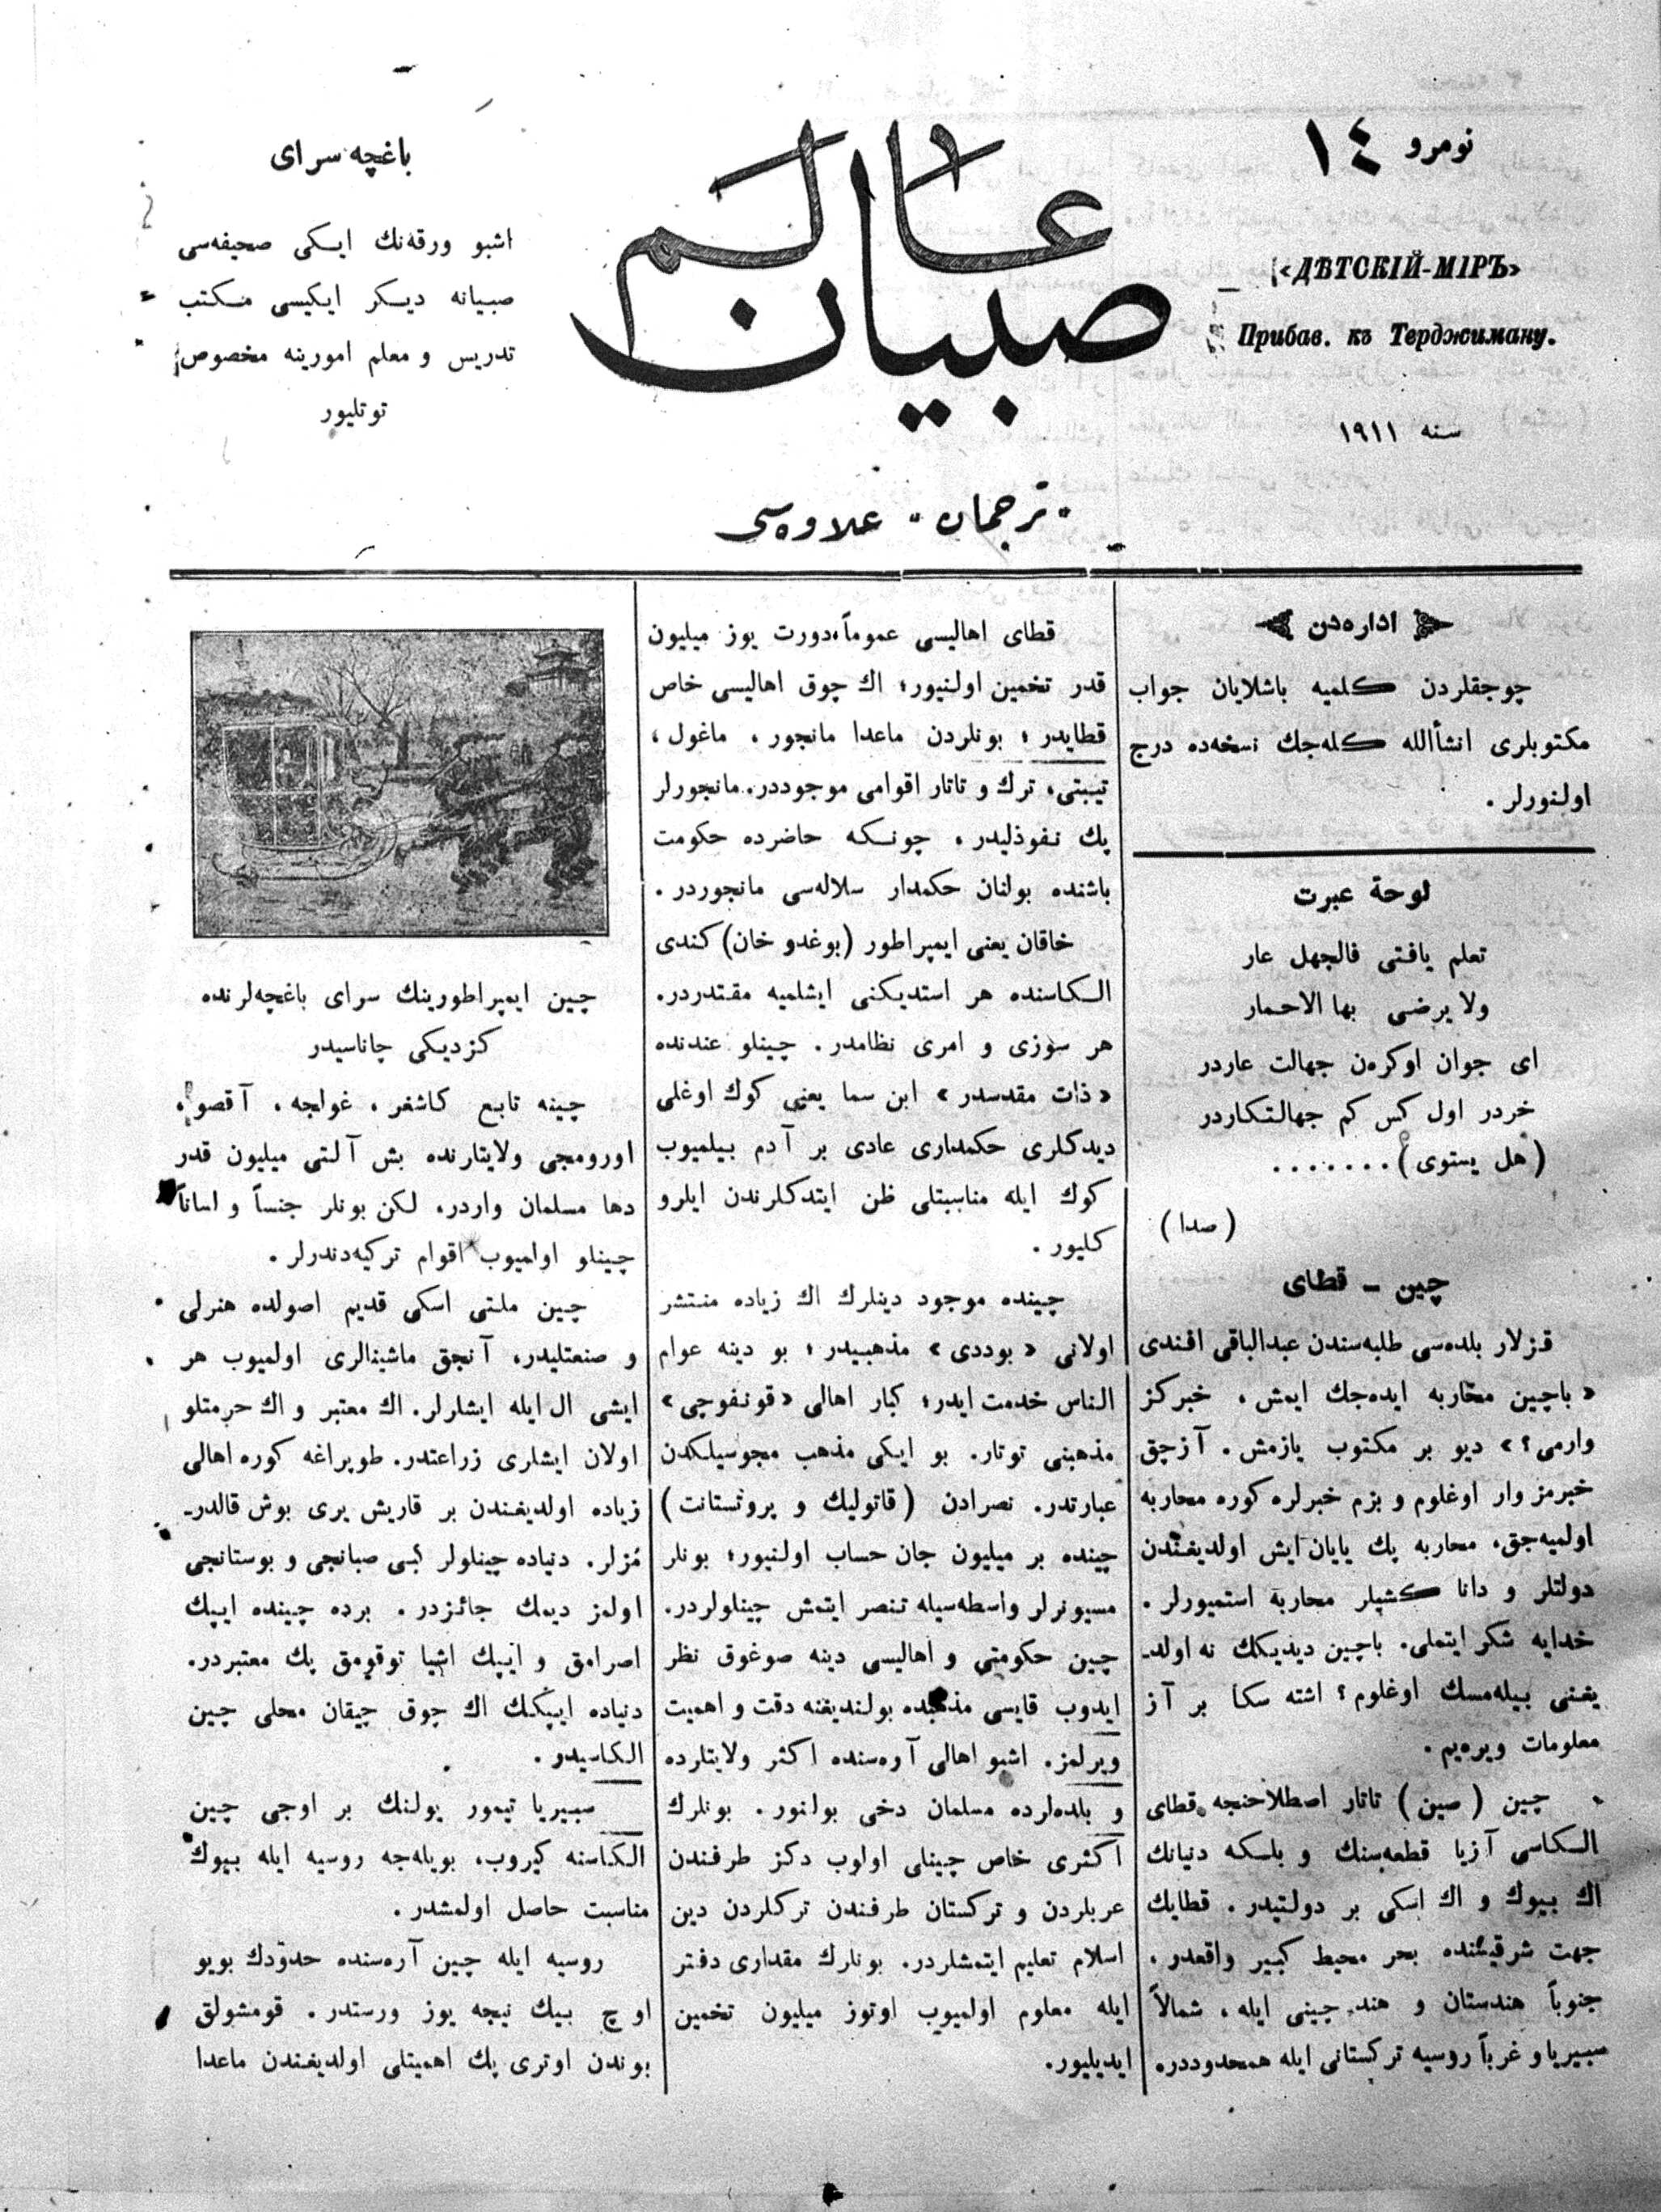 نومرو ١٤
«ДѢТСКІЙ-МІРЪ»
Прибав. къ Терджиману.
سنه ١٩١١
عالم
صبيان
ترجمان علاوه‌سى
باغچه سراى
اشبو ورقه‌نك ايكى صحيفه‌سى
صبيانه ديكر ايكيسى مكتب
تدريس و معلم امورينه مخصوص
توتليور
اداره‌دن
چوجقلردن كلميه باشلايان جواب
مكتوبلرى انشأالله كله‌جك نسخه‌ده درج
اولنورلر .
لوحة عبرت
تعلم يافتى فالجهل عار
ولا يرضى بها الاحمار
اى جوان اوكره‌ن جهالت عاردر
خردر اول كس كم جهالتكاردر
(هل يستوى) .......
(صدا)
چين ــ قطاى
قزلار بلده‌سى طلبه‌سندن عبدالباقى افندى
«باچين محاربه ايده‌جك ايمش ، خبركز
وارمى؟» ديو بر مكتوب يازمش . آزچق
خبرمز وار اوغلوم و بزم خبرلره كوره محاربه
اولميه‌جق، محاربه پك يايان ايش اولديغندن
دولتلر و دانا كشيلر محاربه استميورلر .
خدايه شكر ايتملى. باچين ديديكك نه اولد-
يغنى بيله‌مسك اوغلوم؟ اشته سكا بر آز
معلومات ويره‌يم .
چين (صين) تاتار اصطلاحنجه قطاى
الكاسى آزيا قطعه‌سنك و بلكه دنيانك
اك بيوك و اك اسكى بر دولتيدر . قطايك
جهت شرقيسنده بحر محيط كبير واقعدر ،
جنوباً هندستان و هند چينى ايله ، شمالاً
سيبريا و غرباً روسيه تركستانى ايله همحدوددره
قطاى اهاليسى عموماً،دورت يوز ميليون
قدر تخمين اولنيور؛ اك چوق اهاليسى خاص
قطايدر ؛ بونلردن ماعدا مانجور ، ماغول ،
تيبتى، ترك و تاتار اقوامى موجوددر. مانجورلر
پك نفوذليدر ، چونكه حاضرده حكومت
باشنده بولنان حكمدار سلاله‌سى مانجوردر .
خاقان يعنى ايمپراطور (بوغدو خان) كندى
الكاسنده هر استديكنى ايشلميه مقتدردر.
هر سوزى و امرى نظامدر . چينلو عندنده
«ذات مقدسدر» ابن سما يعنى كوك اوغلى
ديدكلرى حكمدارى عادى بر آدم بيلميوب
كوك ايله مناسبتلى ظن ايتدكلرندن ايلرو
كليور .
چينده موجود دينلرك اك زياده منتشر
اولانى «بوددى» مذهبيدر؛ بو دينه عوام
الناس خدمت ايدر؛ كبار اهالى «قونفوچى»
مذهبنى توتار. بو ايكى مذهب مجوسيلكدن
عبارتدر. نصرادن (قاتوليك و پروتستانت)
چينده بر ميليون جان حساب اولنيور؛ بونلر
مسيونرلر واسطه‌سيله تنصر ايتمش چينلولردر.
چين حكومتى و اهاليسى دينه صوغوق نظر
ايدوب قايسى مذهبده بولنديغنه دقت و اهميت
ويرلمز. اشبو اهالى آره‌سنده اكثر ولايتلرده
و بلده‌لرده مسلمان دخى بولنور. بونلرك
اكثرى خاص چينلى اولوب دكز طرفندن
عربلردن و تركستان طرفندن تركلردن دين
اسلام تعليم ايتمشلردر. بونلرك مقدارى دفتر
ايله معلوم اولميوب اوتوز ميليون تخمين
ايديليور.
چين ايمپراطورينك سراى باغچه‌لرنده
كزديكى چاناسيدر
چينه تابع كاشغر ، غولجه ، آقصو ،
اورومجى ولايتلرنده بش آلتى ميليون قدر
دها مسلمان واردر، لكن بونلر جنساً و لساناً
چينلو اولميوب اقوام تركيه‌دندرلر .
چين ملتى اسكى قديم اصولده هنرلى
و صنعتليدر، آنجق ماشينالرى اولميوب هر
ايشى ال ايله ايشلرلر. اك معتبر و اك حرمتلو
اولان ايشلرى زراعتدر. طوپراغه كوره اهالى
زياده اولديغندن بر قاريش يرى بوش قالدر-
مزلر. دنياده چينلولر كبى صبانجى و بوستانجى
اولمز ديمك جائزدر . برده چينده ايپك
اصرامق و ايپك اشيا توقومق پك معتبردر.
دنياده ايپكك اك چوق چيقان محلى چين
الكاسيدر .
سيبريا تيمور يولنك بر اوجى چين
الكاسنه كيروب، بويله‌جه روسيه ايله بيوك
مناسبت حاصل اولمشدر .
روسيه ايله چين آره‌سنده حدودك بويو
اوچ بيك نيچه يوز ورستدر . قومشولق
بوندن اوترى پك اهميتلى اولديغندن ماعدا